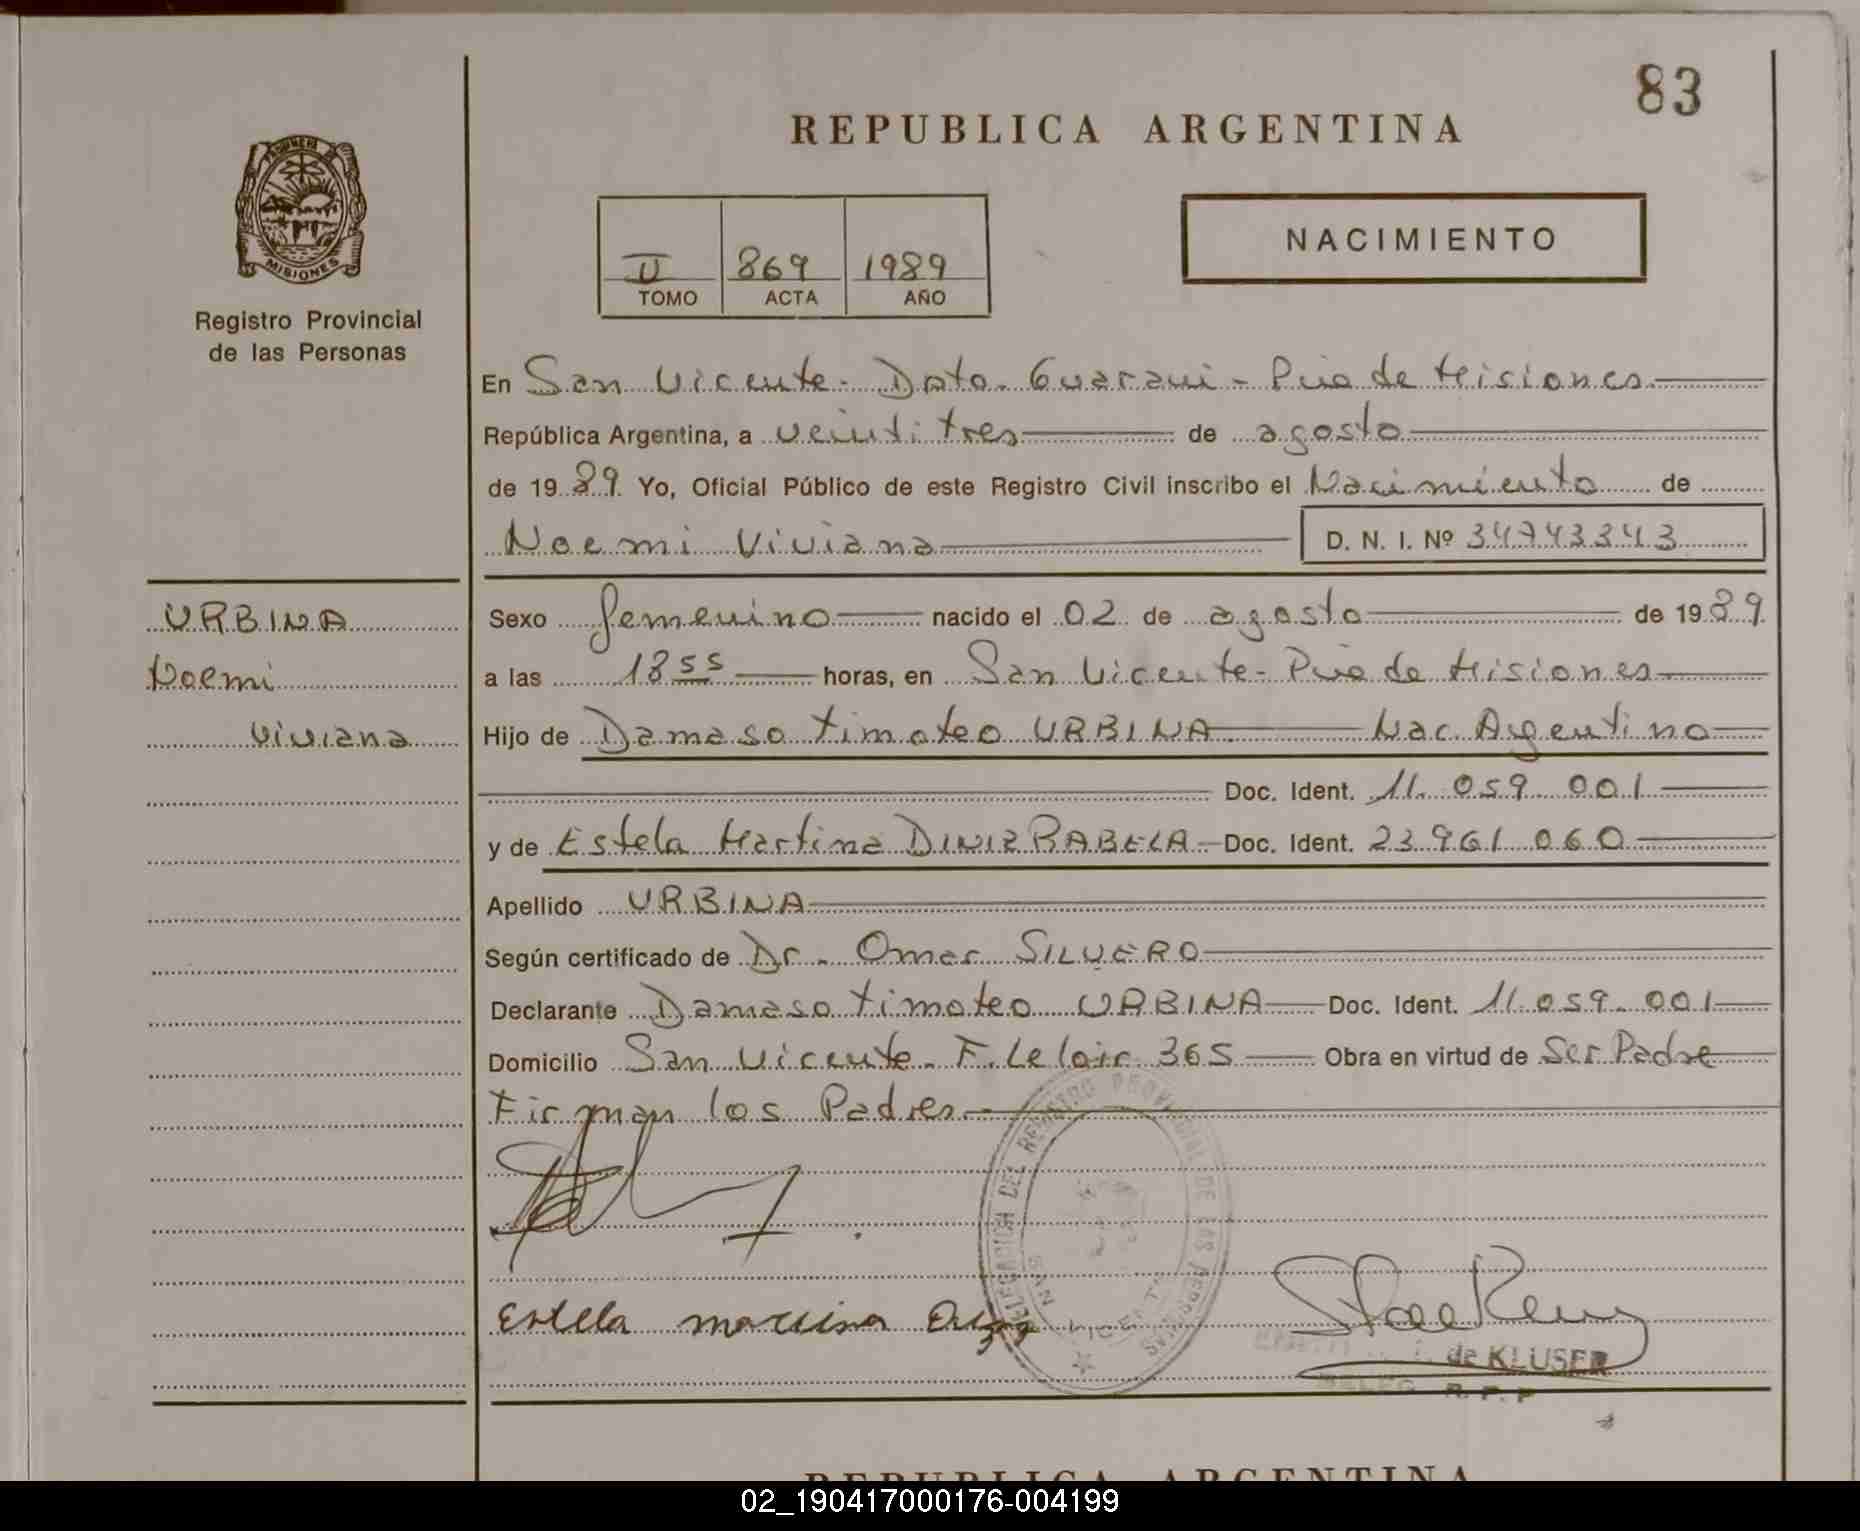 83
REPUBLICA ARGENTINA
PROVINCIA DE
MISIONES
Registro Provincial
de las Personas
II 869 1989
TOMO ACTA AÑO
NACIMIENTO
En San Vicente - Dpto. Guarani - Pcia de Misiones
República Argentina, a veinti tres de agosto
de 1989. Yo, Oficial Público de este Registro Civil inscribo el Nacimiento de
Noemi Viviana D. N. I. Nº 34743343
URBINA
Noemi
Viviana
Sexo femenino nacido el 02 de agosto de 1989.
a las 18 55 horas, en San Vicente - Pcia de Misiones
Hijo de Damaso Timoteo URBINA Nac. Argentino
Doc. Ident. 11.059.001
y de Estela Martina DINIZ RABELA Doc. Ident. 23.961.060
Apellido URBINA
Según certificado de Dr. Omar SILVERO
Declarante Damaso Timoteo URBINA Doc. Ident. 11.059.001
Domicilio San Vicente - F. Leloir 365 Obra en virtud de Ser Padre
Firman los Padres
DELEGACION DEL REGISTRO PROVINCIAL DE LAS PERSONAS
SAN VICENTE
Estela martina
de KLUSER
DELEG. R. P. P.
REPUBLICA ARGENTINA
02_190417000176-004199